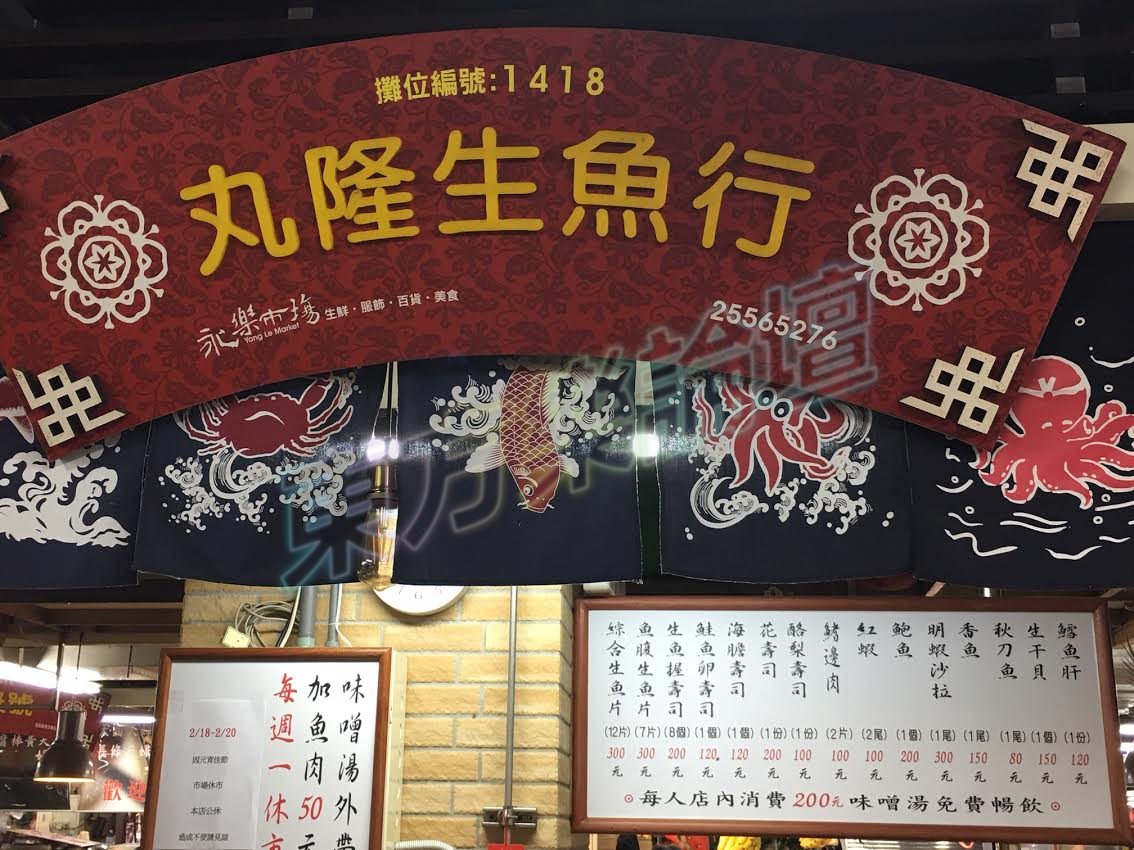 攤位編號:1418
丸隆生魚行
永樂市場 生鮮·服飾·百貨·美食
Yong Le Market
25565276
東方
論壇
綜合生魚片 (12片) 300元
魚腹生魚片 (7片) 300元
生魚握壽司 (8個) 200元
鮭魚卵壽司 (1個) 120元
海膽壽司 (1個) 120元
花壽司 (1份) 200元
酪梨壽司 (1份) 100元
鰭邊肉 (2片) 100元
紅蝦 (2尾) 100元
鮑魚 (1個) 200元
明蝦沙拉 (1尾) 300元
香魚 (1尾) 150元
秋刀魚 (1尾) 80元
生干貝 (1個) 150元
鱈魚肝 (1份) 120元
每人店內消費200元味噌湯免費暢飲
味噌湯外帶
加魚肉50元
每週一休市
2/18-2/20
因元宵佳節
市場休市
本店公休
造成不便請見諒
歡迎